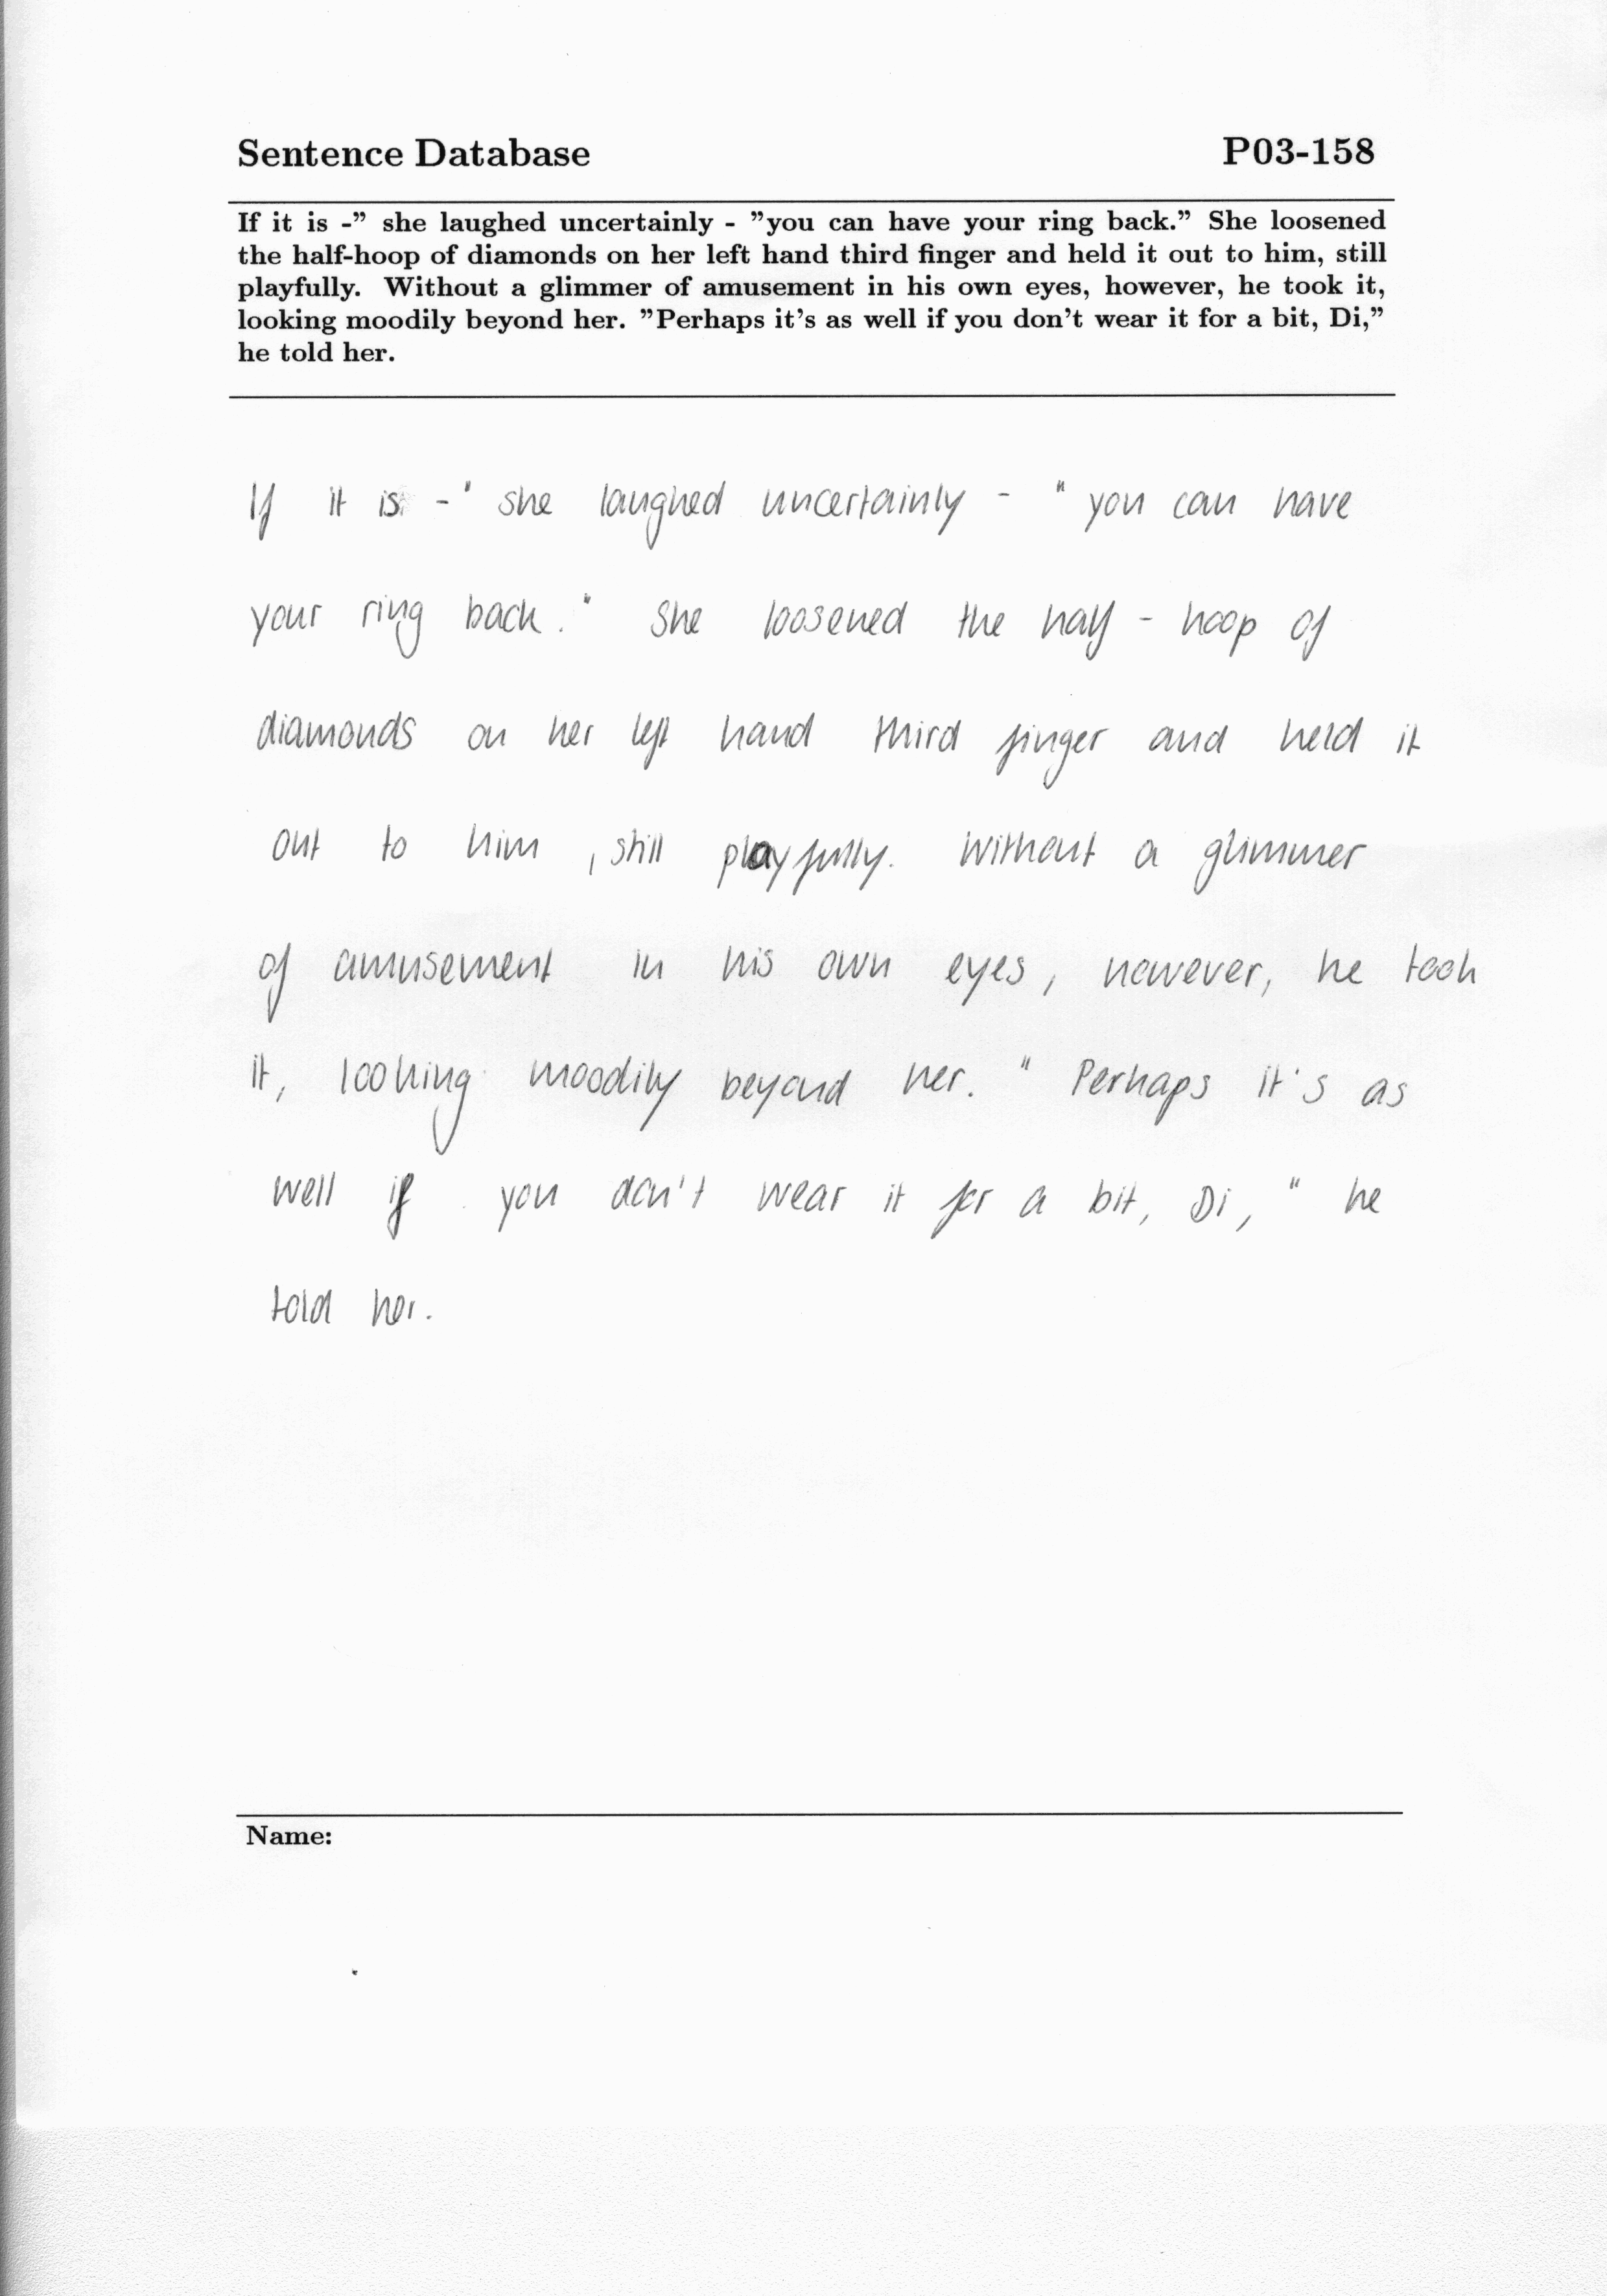 Sentence Database P03-158
If it is -” she laughed uncertainly - ”you can have your ring back.” She loosened
the half-hoop of diamonds on her left hand third finger and held it out to him, still
playfully. Without a glimmer of amusement in his own eyes, however, he took it,
looking moodily beyond her. ”Perhaps it’s as well if you don’t wear it for a bit, Di,”
he told her.
If it is -" she laughed uncertainly - "you can have
your ring back." She loosened the half - hoop of
diamonds on her left hand third finger and held it
out to him , still playfully. Without a glimmer
of amusement in his own eyes, however, he took
it, looking moodily beyond her. "Perhaps it's as
well if you don't wear it for a bit, Di," he
told her.
Name: